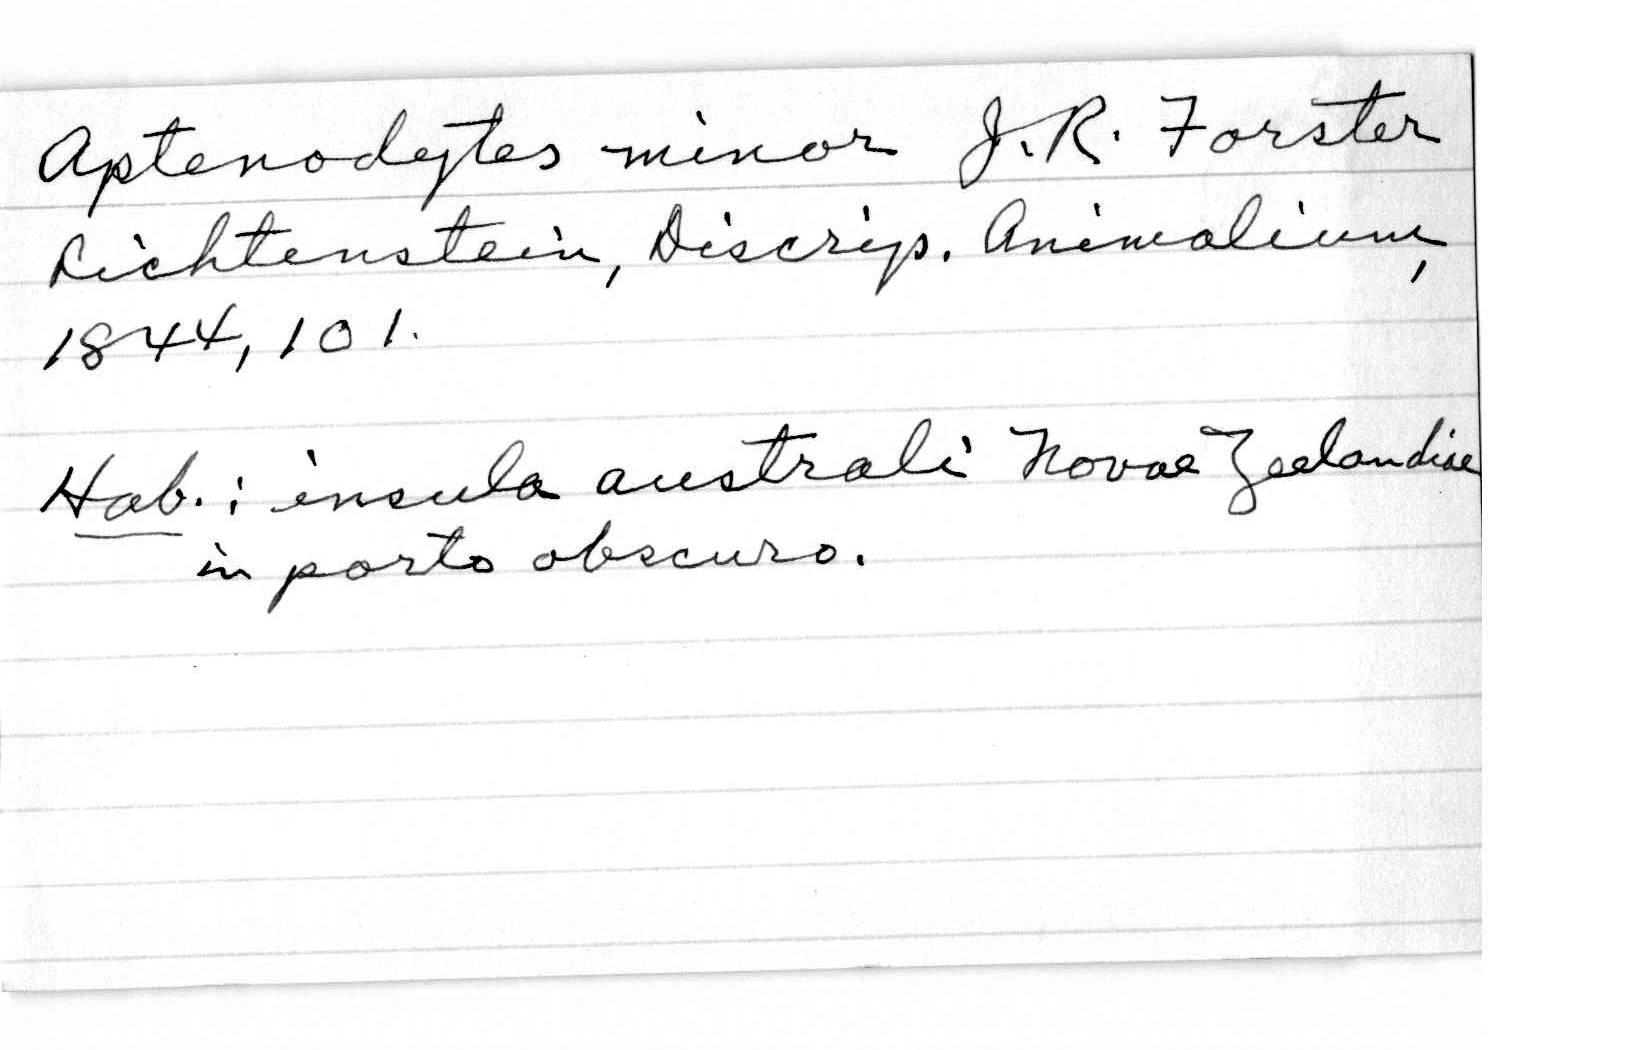 Aptenodytes minor J.R. Forster
Lichtenstein, Discrip. Animalium,
1844, 101.
Hab.: insula australi Novae Zeelandiae
in porto obscuro.